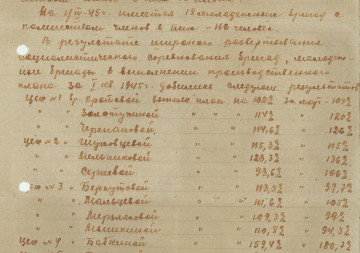 На 1/IV-45г. имеется 18 молодежных бригад с
количеством членов в них - 160 человек.
В результате широкого развертывания
социалистического соревнования бригад, молодеж-
ные бригады в выполнении производственного
плана за I кв. 1945г. добились следующ. результатов
Цех №1 бр. Протовой выполн. план на 102% за май - 103%
" " Золотухиной " " 114% " 120%
" " Черепановой " " 114,6% " 126%
Цех №2 " Шумовцевой " " 115,3% " 115%
" " Мельниковой " " 120,3% " 136%
" " Сергеевой " " 93,6% " 106%
Цех №3 " Беркутовой " " 113,5% " 97,7%
" " Мальцевой " " 111,6% " 105%
" " " " 109,3% "
" " Мошкиной " " 110,8% " 94,3%
Цех №4 " Бабкиной " " 159,4% " 180,7%